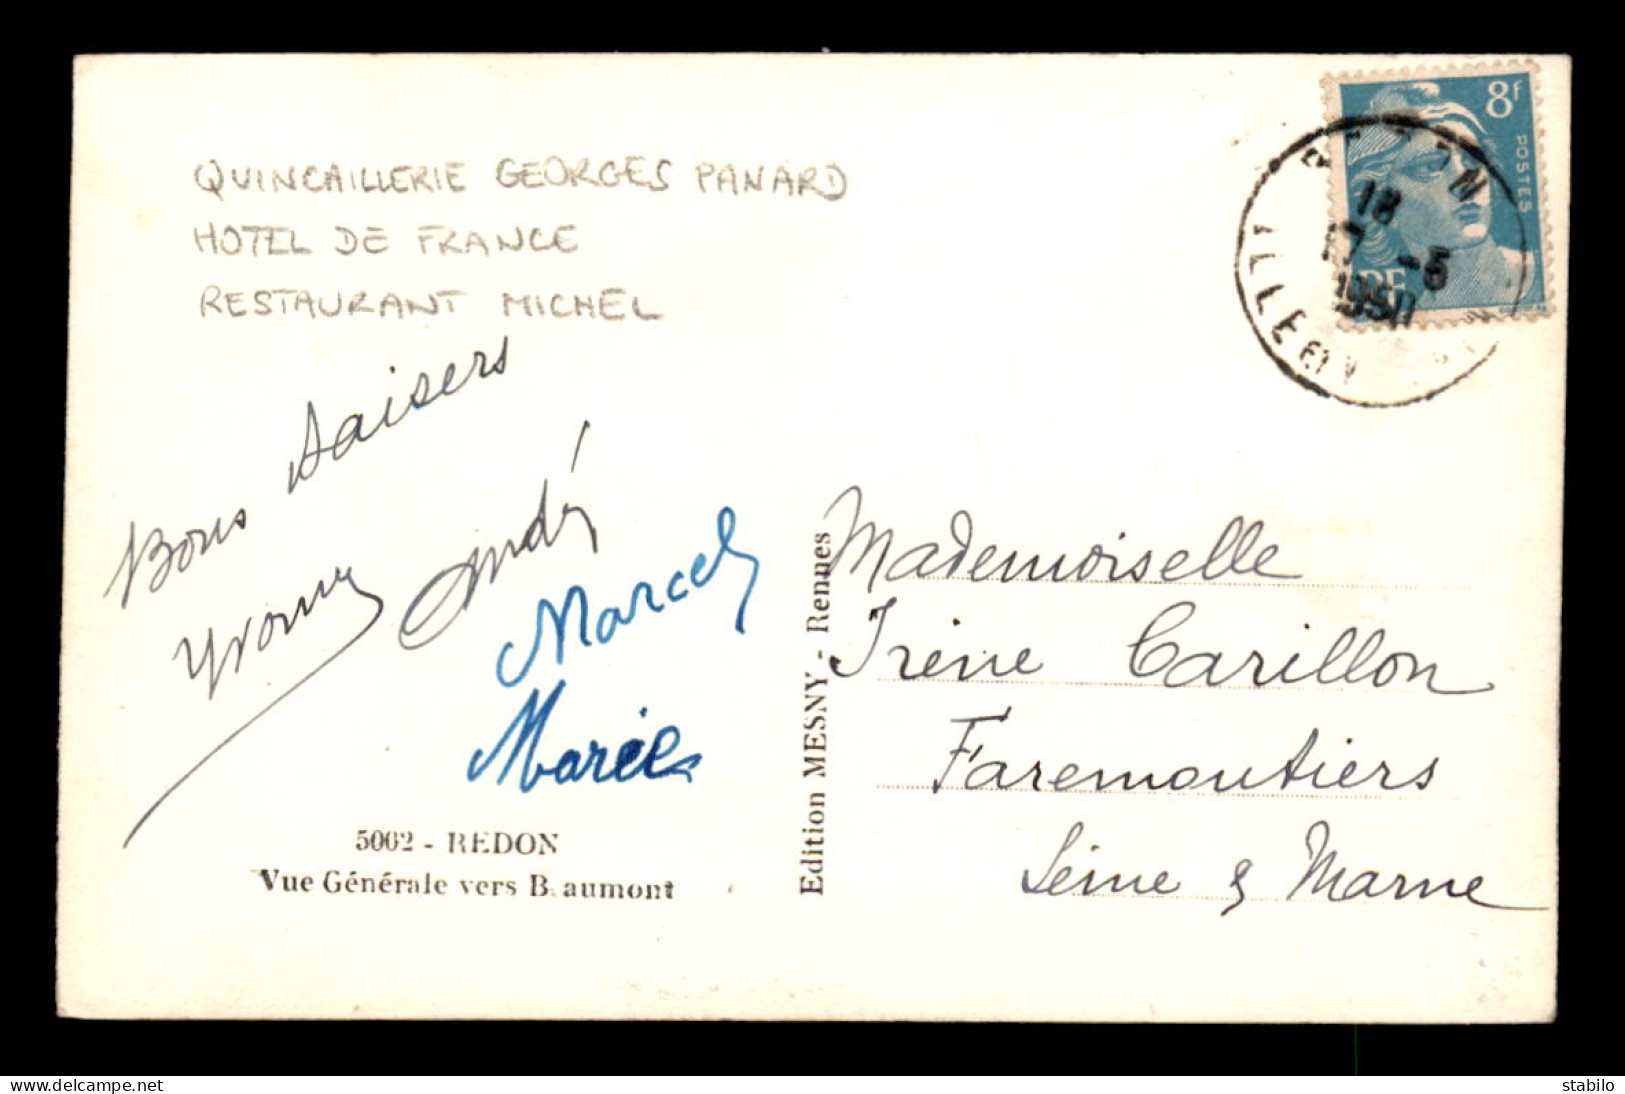 QUINCAILLERIE GEORGES PANARD
HOTEL DE FRANCE
RESTAURANT MICHEL
Bons baisers
Yvonne André
Marcel
Marcel
5002 - REDON
Vue Générale vers Beaumont
Edition MESNY - Rennes
8f
POSTES
RF
REDON
18
17 -5
1950
ILLE ET V
Mademoiselle
Irène Carillon
Faremoutiers
Seine & Marne
delcampe.net
stabilo